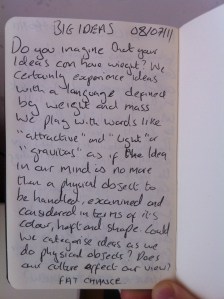 BIG IDEAS 08/07/11
Do you imagine that your
Ideas can have weight? We
certainly experience ideas
with a language defined
by weight and mass
We play with words like
"attractive" and "light" or
"gravitas" as if the Idea
in our mind is no more
than a physical object to
be handled, examined and
considered in terms of it's
colour, heft and shape. Could
we categorise ideas as we
do physical objects? Does
our culture affect our view?
FAT CHANCE